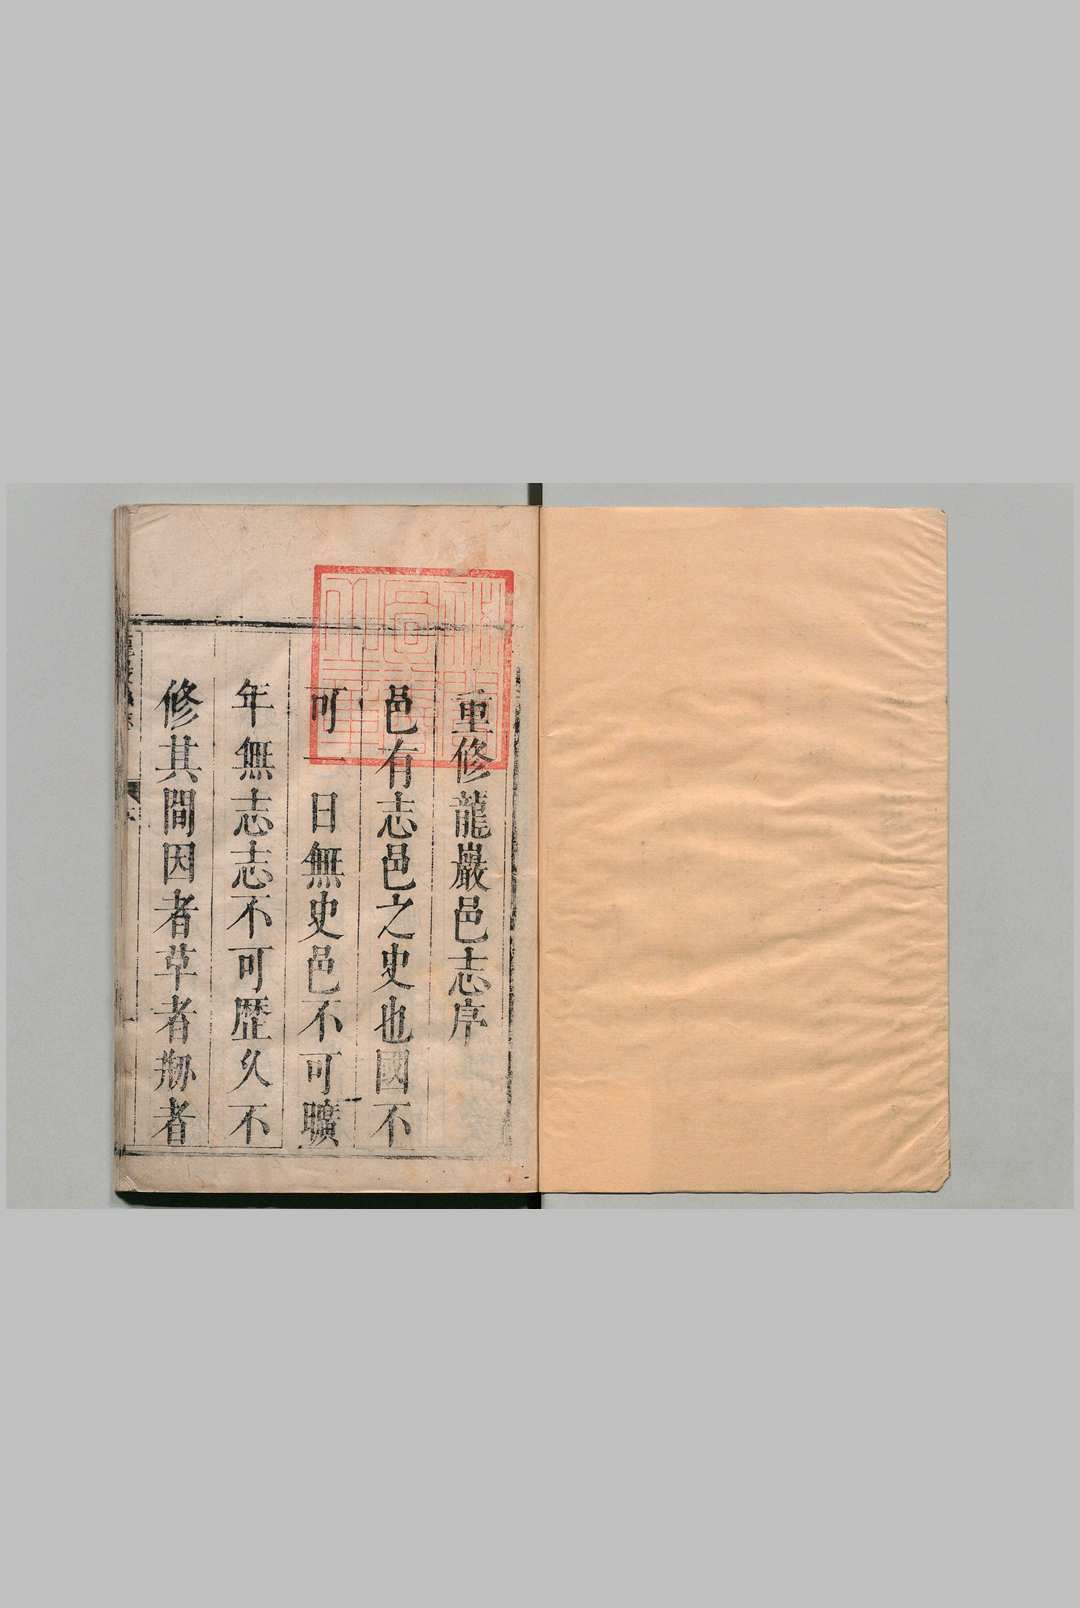 重修龍巖邑志序
邑有志邑之史也國不
可一日無史邑不可曠
年無志志不可歷久不
修其間因者草者刱者